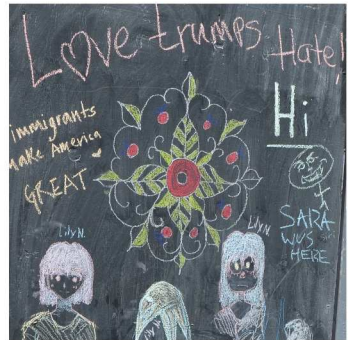 Love trumps Hate!
immigrants
make America
GREAT
Hi
SARA
WUS
HERE
Lily N.
Lily N.